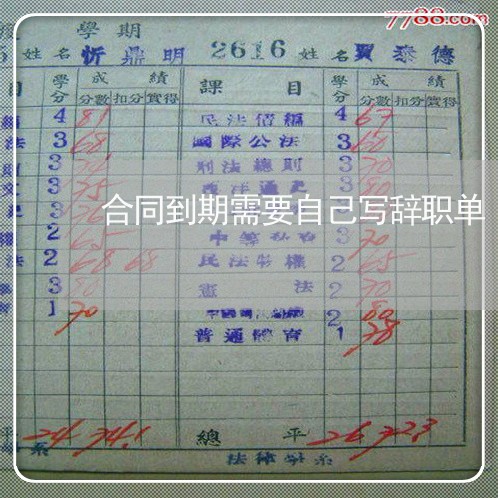 7788.com
學期
姓名 忻鼎明 2616 姓名 賈泰德
目 學分 成績 課目 學分 成績
分數 扣分 實得 分數 扣分 實得
4 81 民法債編 4 67
法 3 68 國際公法 3 60
3 刑法總則 3 70
3 75 西洋通史 3 80
合同到期需要自己写辞职单
2 65 3 70
法 2 68 68 民法物權 2 65
3 80 憲法 2 70
1 70 2 80
普通體育 1 78
平 24 74.1 總平 26 72.3
系 法律學系